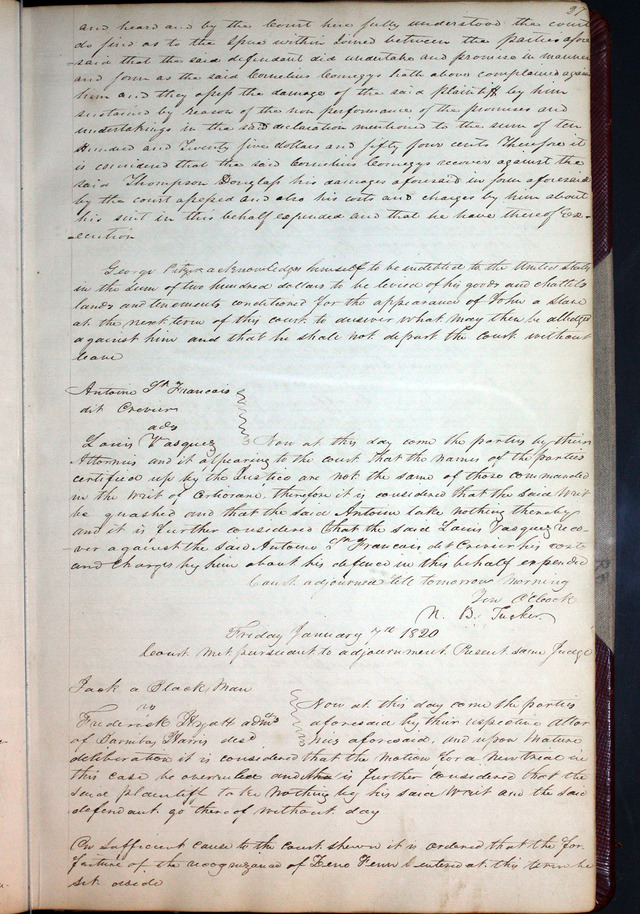 and heard and by the Court here fully understood the court
do find as to the Issue within Joined between the parties afore
-said that the said defendant did undertake and promise in manner
and form as the said Cornelius Comegys hath above complained against
him and they assess the damage of the said plaintiff by him
sustained by reason of the non performance of the promises and
undertakings in the said declaration mentioned to the sum of ten
Hundred and Twenty five dollars and fifty four cents Therefore it
is considered that the said Cornelius Comegys recover against the
said Thompson Douglass his damages aforesaid in form aforesaid
by the court assessed and also his costs and charges by him about
his suit in this behalf expended and that he have thereof Ex-
-ecution
George acknowledges himself to be indebted to the United States
in the sum of two hundred dollars to be levied of his goods and chattels
lands and tenements conditioned for the appearance of John a slave
at the next term of this court to answer what may then be alledged
against him and that he shall not depart the court without
leave
Antoine St. Francois
dit Crevier
ads
Louis Vasquez
Now at this day come the parties by their
Attornies and it appearing to the court that the names of the parties
certified up by the Justice are not the same of those commanded
in the writ of Certiorari therefore it is considered that the said Writ
be quashed and that the said Antoine take nothing thereby
and it is further considered that the said Louis Vasquez reco-
-ver against the said Antoine St. Francois dit Crevier his costs
and charges by him about his defence in this behalf expended
Court adjourned till tomorrow morning
Ten OClock
N. B. Tucker
Friday January 7th 1820
Court met pursuant to adjournment Present same Judge
Jack a Black Man
vs
Frederick Hyatt admr
of Barnibas Harris decd
Now at this day come the parties
aforesaid by their respective attor
nies aforesaid, and upon mature
deliberation it is considered that the motion for a new trial in
this case be overruled and is further considered that the
said plaintiff take nothing by his said Writ and the said
defendant go thereof without day
On sufficient cause to the court shewn it is ordered that the for-
-feiture of the recognizance of Zeno Fenn entered at this term be
set aside